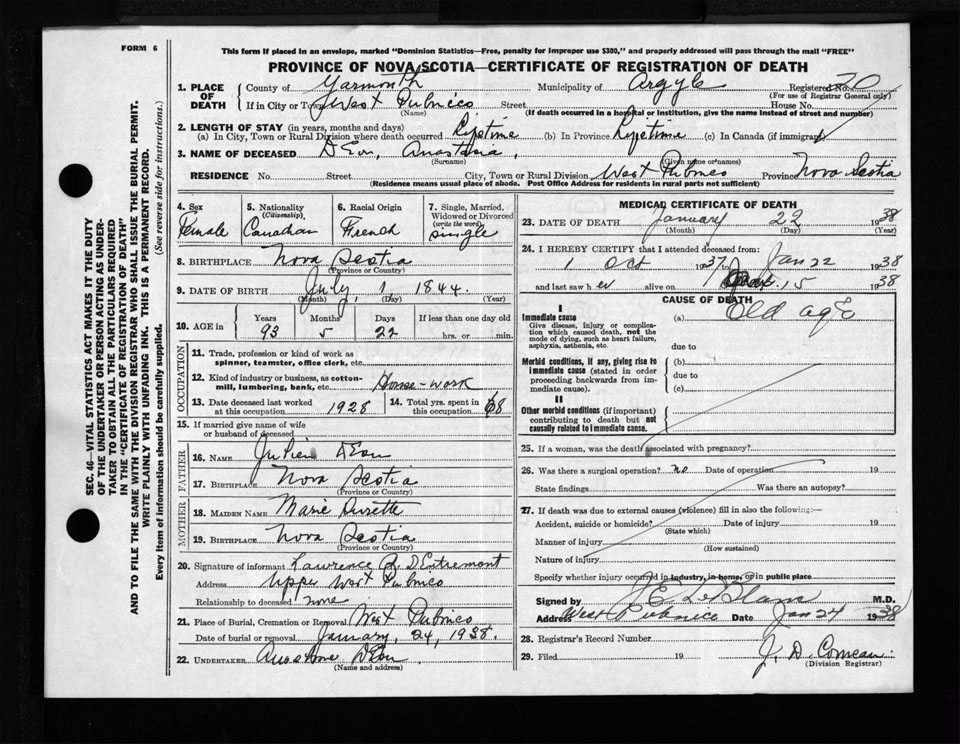 FORM 6
This form if placed in an envelope, marked "Dominion Statistics—Free, penalty for improper use $300," and properly addressed will pass through the mail "FREE"
PROVINCE OF NOVA SCOTIA—CERTIFICATE OF REGISTRATION OF DEATH
1. PLACE OF DEATH County of Yarmouth Municipality of Argyle Registered No. 20
(For use of Registrar General only)
If in City or Town West Pubnico Street House No.
(Name) (If death occurred in a hospital or institution, give the name instead of street and number)
2. LENGTH OF STAY (in years, months and days)
(a) In City, Town or Rural Division where death occurred Lifetime (b) In Province Lifetime (c) In Canada (if immigrant)
3. NAME OF DECEASED D'Eon, Anastasia,
(Surname) (Given name or names)
RESIDENCE No. Street City, Town or Rural Division West Pubnico Province Nova Scotia
(Residence means usual place of abode. Post Office Address for residents in rural parts not sufficient)
4. Sex Female
5. Nationality (Citizenship) Canadian
6. Racial Origin French
7. Single, Married, Widowed or Divorced (write the word) Single
8. BIRTHPLACE Nova Scotia
(Province or Country)
9. DATE OF BIRTH July 1, 1844.
(Month) (Day) (Year)
10. AGE in Years Months Days If less than one day old
93 5 22 hrs. or min.
OCCUPATION
11. Trade, profession or kind of work as spinner, teamster, office clerk, etc.
12. Kind of industry or business, as cotton-mill, lumbering, bank, etc. House-work
13. Date deceased last worked at this occupation 1928
14. Total yrs. spent in this occupation 68
15. If married give name of wife or husband of deceased
FATHER
16. NAME Julien D'Eon
17. BIRTHPLACE Nova Scotia
(Province or Country)
MOTHER
18. MAIDEN NAME Marie Surette
19. BIRTHPLACE Nova Scotia
(Province or Country)
20. Signature of informant Lawrence A. D'Entremont
Address Upper West Pubnico
Relationship to deceased none
21. Place of Burial, Cremation or Removal West Pubnico
Date of burial or removal January, 24, 1938.
22. UNDERTAKER D'Eon
(Name and address)
MEDICAL CERTIFICATE OF DEATH
23. DATE OF DEATH January 22 1938
(Month) (Day) (Year)
24. I HEREBY CERTIFY that I attended deceased from:
1 Oct 1937 to Jan 22 1938
and last saw h er alive on 15 1938
CAUSE OF DEATH
I
Immediate cause (a) Old age
Give disease, injury or complication which caused death, not the mode of dying, such as heart failure, asphyxia, asthenia, etc.
due to
Morbid conditions, if any, giving rise to immediate cause (stated in order proceeding backwards from immediate cause).
(b)
due to
(c)
II
Other morbid conditions (if important) contributing to death but not causally related to immediate cause.
25. If a woman, was the death associated with pregnancy?
26. Was there a surgical operation? no Date of operation 19
State findings Was there an autopsy?
27. If death was due to external causes (violence) fill in also the following:—
Accident, suicide or homicide? Date of injury 19
(State which)
Manner of injury
(How sustained)
Nature of injury
Specify whether injury occurred in industry, in home, or in public place
Signed by J E LeBlanc M.D.
Address West Pubnico Date Jan 24 1938
28. Registrar's Record Number
29. Filed 19 J. D. Comeau
(Division Registrar)
SEC. 46—VITAL STATISTICS ACT MAKES IT THE DUTY
OF THE UNDERTAKER OR PERSON ACTING AS UNDER-
TAKER TO OBTAIN ALL THE PARTICULARS REQUIRED
IN THE "CERTIFICATE OF REGISTRATION OF DEATH"
AND TO FILE THE SAME WITH THE DIVISION REGISTRAR WHO SHALL ISSUE THE BURIAL PERMIT.
WRITE PLAINLY WITH UNFADING INK. THIS IS A PERMANENT RECORD.
Every item of information should be carefully supplied. (See reverse side for instructions.)